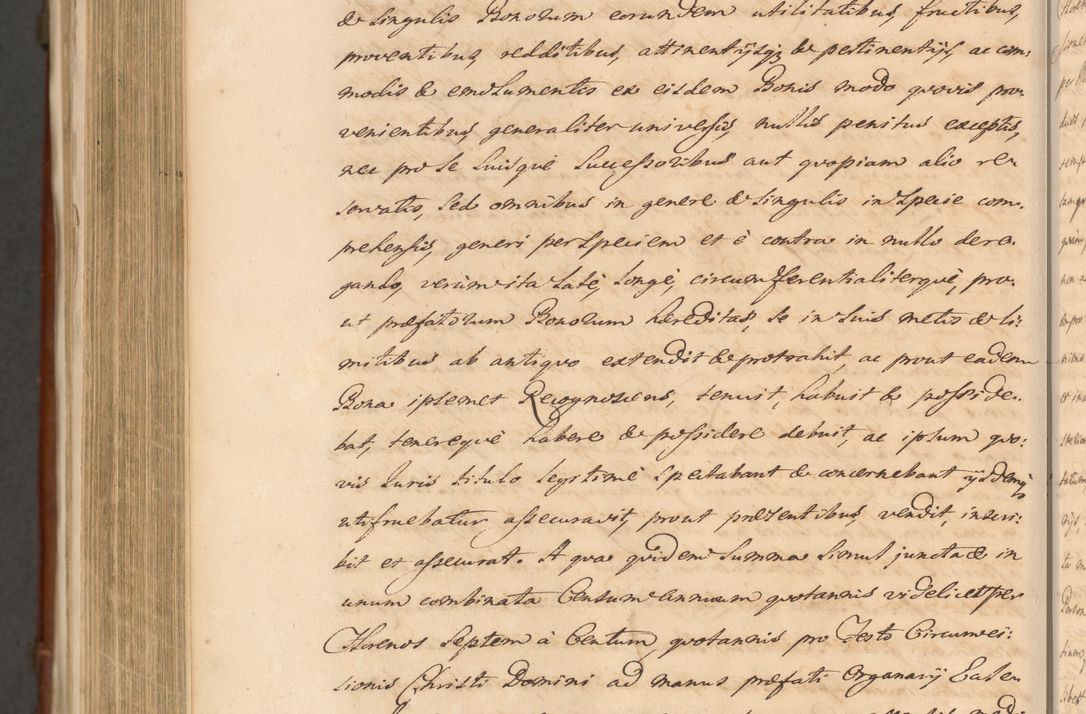 & Singulis Bonorum eorundem utilitatibus, fructibus,
proventibus, redditibus, attinentijsq; & pertinentijs, ac com:
modis & emolumentis ex eisdem Bonis modo quovis pro:
venientibus, generaliter universis, nullis penitus exceptis,
nec pro se Suisque Successoribus aut quopiam alio re:
servatis, Sed omnibus in genere & Singulis in Specie com:
prehensis, generi per Speciem et è contra in nullo dero:
gando, verùm ita Latè, Longè, circumferentialiterquè, pro:
ut præfatorum Bonorum hæreditas, Se in Suis metis & li:
mitibus ab antiquo extendit & protrahit, ac prout eadem
Bona ipsemet Recognoscens, tenuit, habuit & posside:
bat, tenerequè habere & possidere debuit, ac ipsum quo:
vis Iuris titulo legitimè Spectabant & concernebant ijsdemq;
utifruebatur, assecuravit, prout præsentibus, vendit, inscri:
bit et assecurat. A qua quidem Summa Simul juncta & in
unum combinata Censum annuum quotannis videlicet per
Florenos Septem à Centum, quotannis pro Festo Circumci:
sionis Christi Domini ad manus præfati Organarij